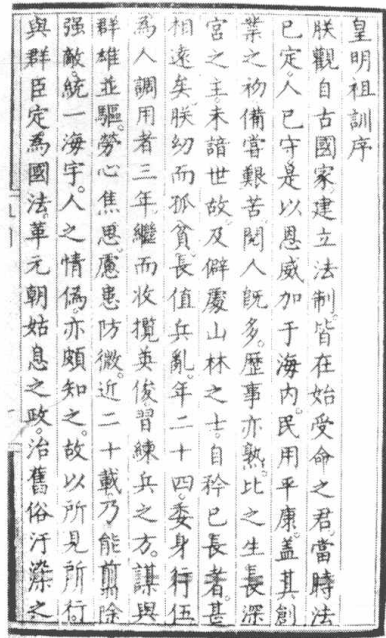 皇明祖訓序
朕觀自古國家建立法制。皆在始受命之君。當時法
已定。人已守。是以恩威加于海内。民用平康。盖其創
業之初。備嘗艱苦。閱人既多。歷事亦熟。比之生長深
宮之主。未諳世故。及僻處山林之士。自矜己長者。甚
相遠矣。朕幼而孤貧。長值兵亂。年二十四。委身行伍
為人調用者三年。繼而收攬英俊。習練兵之方。謀與
群雄並驅。勞心焦思。慮患防微。近二十載。乃能翦除
强敵。統一海宇。人之情偽。亦頗知之。故以所見所行。
與群臣定為國法。革元朝姑息之政。治舊俗汙染之